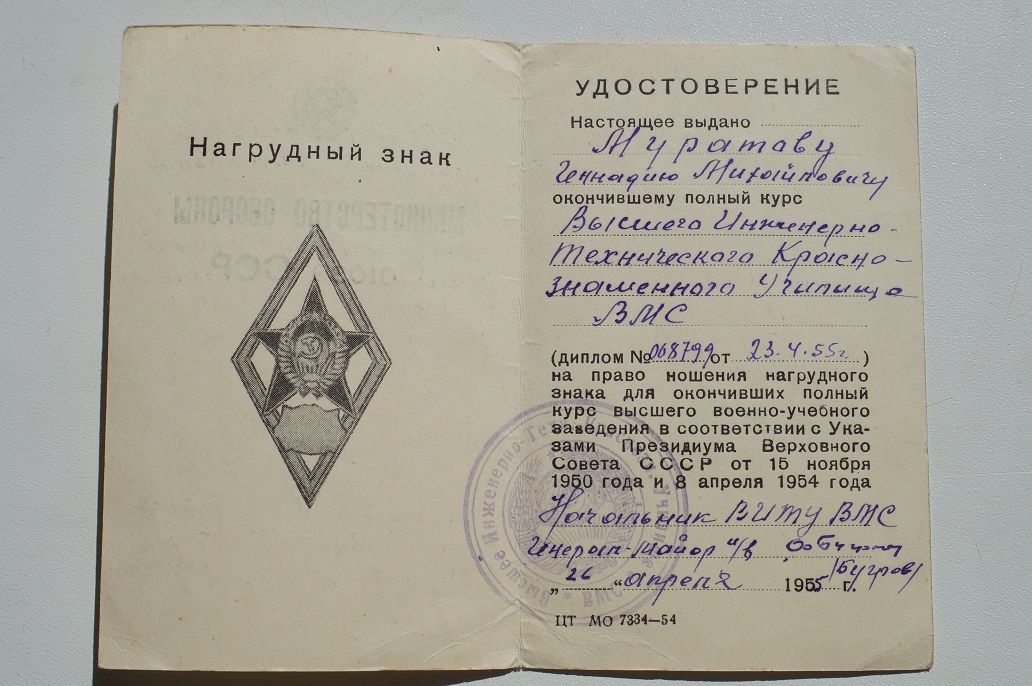 Нагрудный знак
УДОСТОВЕРЕНИЕ
Настоящее выдано
Муратову
Геннадию Михайловичу
окончившему полный курс
Высшего Инженерно-
Технического Красно-
знаменного Училища
ВМС
(диплом № 068799 от 23.4.55г. )
на право ношения нагрудного
знака для окончивших полный
курс высшего военно-учебного
заведения в соответствии с Ука-
зами Президиума Верховного
Совета СССР от 15 ноября
1950 года и 8 апреля 1954 года
Начальник ВИТУ ВМС
Генерал-майор и/в
/Бугров/
„ 26 “ апреля 1955 г.
ЦТ МО 7334—54